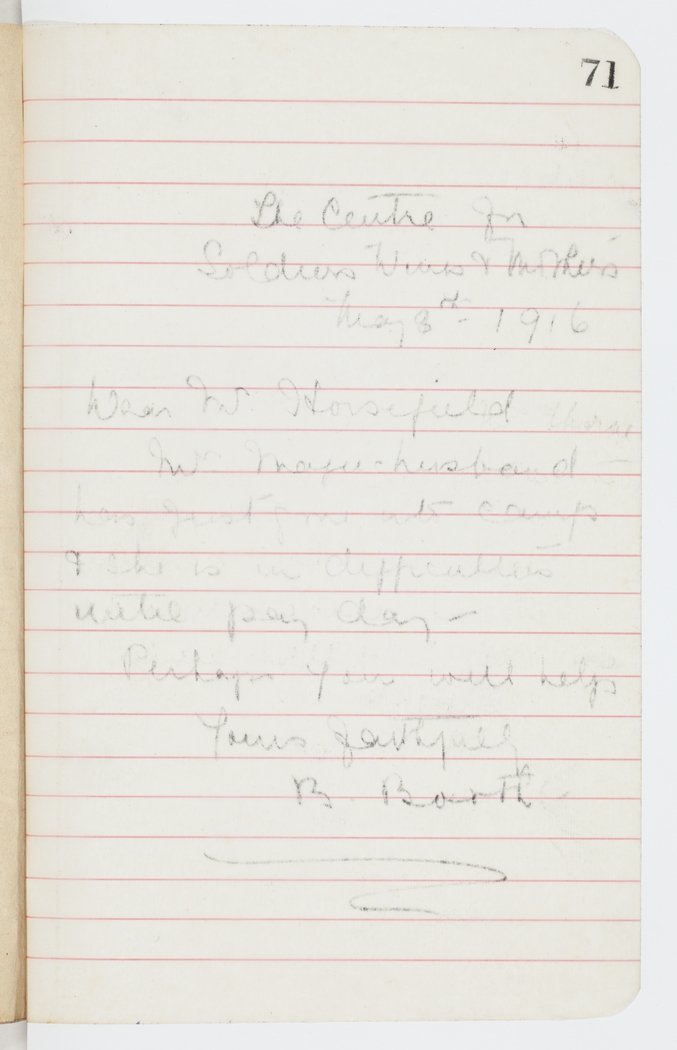 71
The Centre for
Soldiers Wives & Mothers
May 8th - 1916
Dear Mr. Horsefield
husband -
has just gone into camp
& she is in difficulties
until pay day -
Perhaps you will help
Yours faithfully
B. Barth